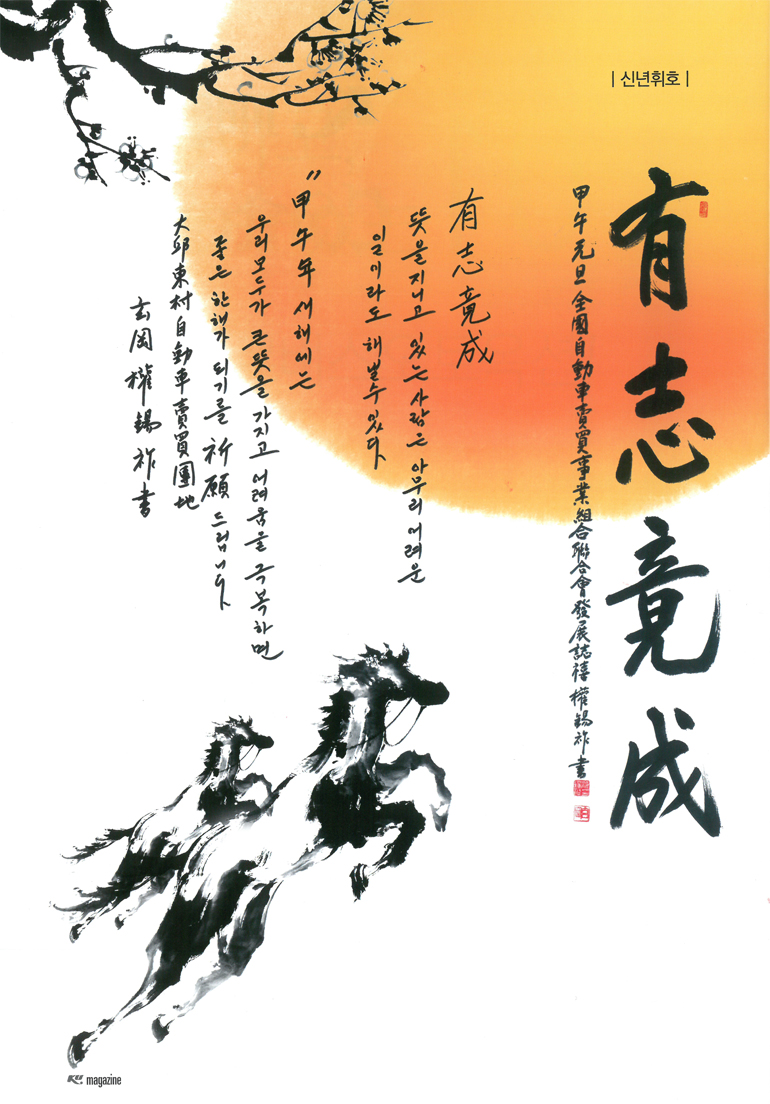 | 신년휘호 |
有志竟成
甲午元旦 全國自動車賣買事業組合聯合會發展誌禧 權錫祚書
有志竟成
뜻을 지니고 있는 사람은 아무리 어려운
일이라도 해낼수있다
"甲午年 새해에는
우리 모두가 큰뜻을 가지고 어려움을 극복하면
좋은 한해가 되기를 祈願 드립니다
大邱東村自動車賣買團地
玄岡 權錫祚書
magazine